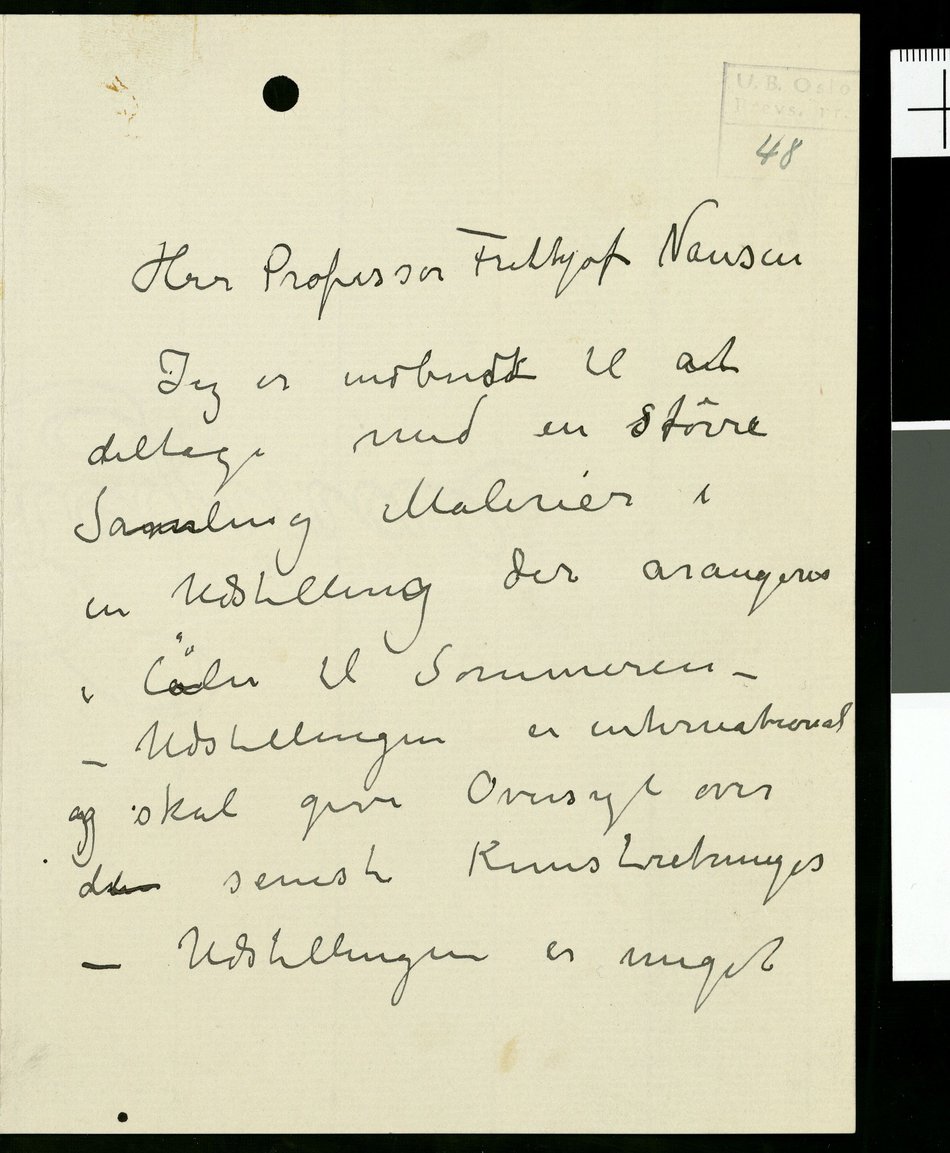 U.B. Oslo
Brevs. nr.
48
Herr Professor Frithjof Nansen
Jeg er indbudt til at
deltage med en större
Samling Malerier i
en Udstilling der arangeres
i Cöln til Sommeren –
– Udstillingen er international
og skal give Oversygt over
den seneste Kunstretninger
– Udstillingen er meget